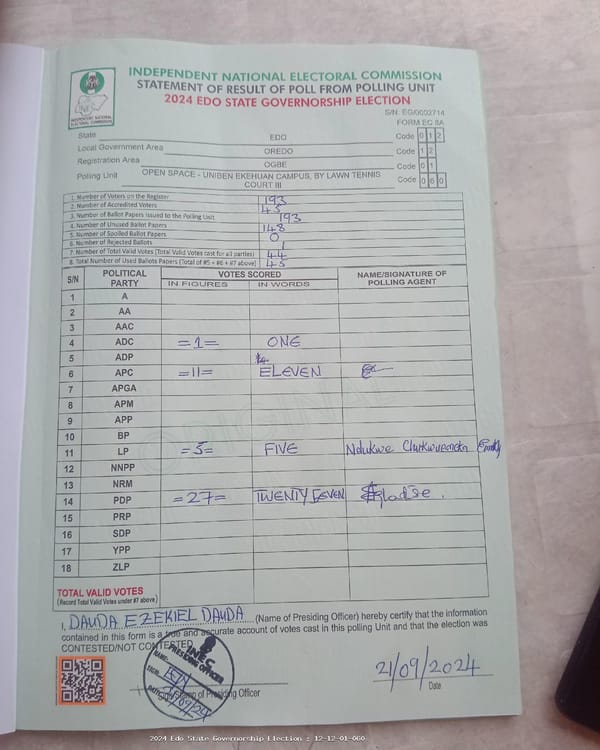 INDEPENDENT NATIONAL ELECTORAL COMMISSION
STATEMENT OF RESULT OF POLL FROM POLLING UNIT
2024 EDO STATE GOVERNORSHIP ELECTION
S/N. EG/0002714
FORM EC 8A
INDEPENDENT NATIONAL ELECTORAL COMMISSION
State EDO Code 0 1 2
Local Government Area OREDO Code 1 2
Registration Area OGBE Code 0 1
Polling Unit OPEN SPACE - UNIBEN EKEHUAN CAMPUS, BY LAWN TENNIS COURT III Code 0 6 0
1. Number of Voters on the Register 193
2. Number of Accredited Voters 45
3. Number of Ballot Papers Issued to the Polling Unit 193
4. Number of Unused Ballot Papers 148
5. Number of Spoiled Ballot Papers 0
6. Number of Rejected Ballots 1
7. Number of Total Valid Votes (Total Valid Votes cast for all parties) 44
8. Total Number of Used Ballots Papers (Total of #5 + #6 + #7 above) 45
S/N POLITICAL PARTY VOTES SCORED NAME/SIGNATURE OF POLLING AGENT
IN FIGURES IN WORDS
1 A
2 AA
3 AAC
4 ADC =1= ONE
5 ADP
6 APC =11= ELEVEN
7 APGA
8 APM
9 APP
10 BP
11 LP =5= FIVE Ndukwe
12 NNPP
13 NRM
14 PDP =27= TWENTY SEVEN
15 PRP
16 SDP
17 YPP
18 ZLP
TOTAL VALID VOTES
(Record Total Valid Votes under #7 above)
I, DAUDA EZEKIEL DAUDA (Name of Presiding Officer) hereby certify that the information
contained in this form is a true and accurate account of votes cast in this polling Unit and that the election was
CONTESTED/NOT CONTESTED
INEC
PRESIDING OFFICER
NAME:
SIGN:
DATE:
of Presiding Officer
21/09/2024
Date
2024 Edo State Governorship Election : 12-12-01-060